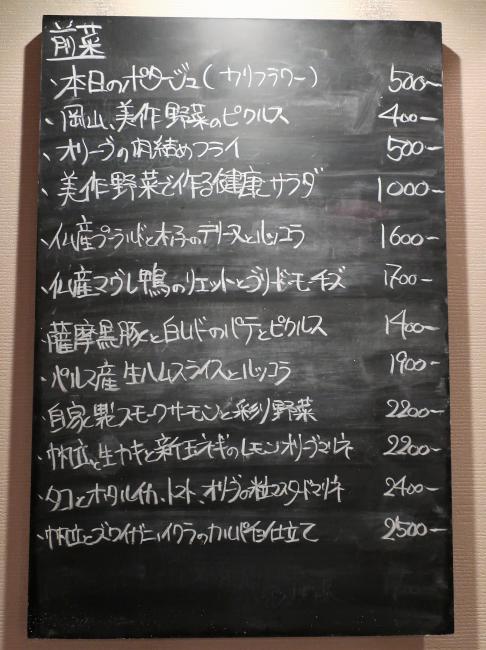 前菜
・本日のポタージュ(カリフラワー) 500-
・岡山、美作野菜のピクルス 400-
・オリーブの肉詰めフライ 500-
・美作野菜で作る健康サラダ 1000-
・仏産プーラルドと木の子のテリーヌとルッコラ 1600-
・仏産マグレ鴨のリエットとブリ・ド・モーチーズ 1700-
・薩摩黒豚と白レバーのパテとピクルス 1400-
・パルマ産生ハムスライスとルッコラ 1900-
・自家製スモークサーモンと彩り野菜 2200-
・帆立と生カキと新玉ネギのレモンオリーブマリネ 2200-
・タコとホタルイカ、トマト、オリーブの粒マスタードマリネ 2400-
・帆立とズワイガニ、イクラのカルパッチョ仕立て 2500-